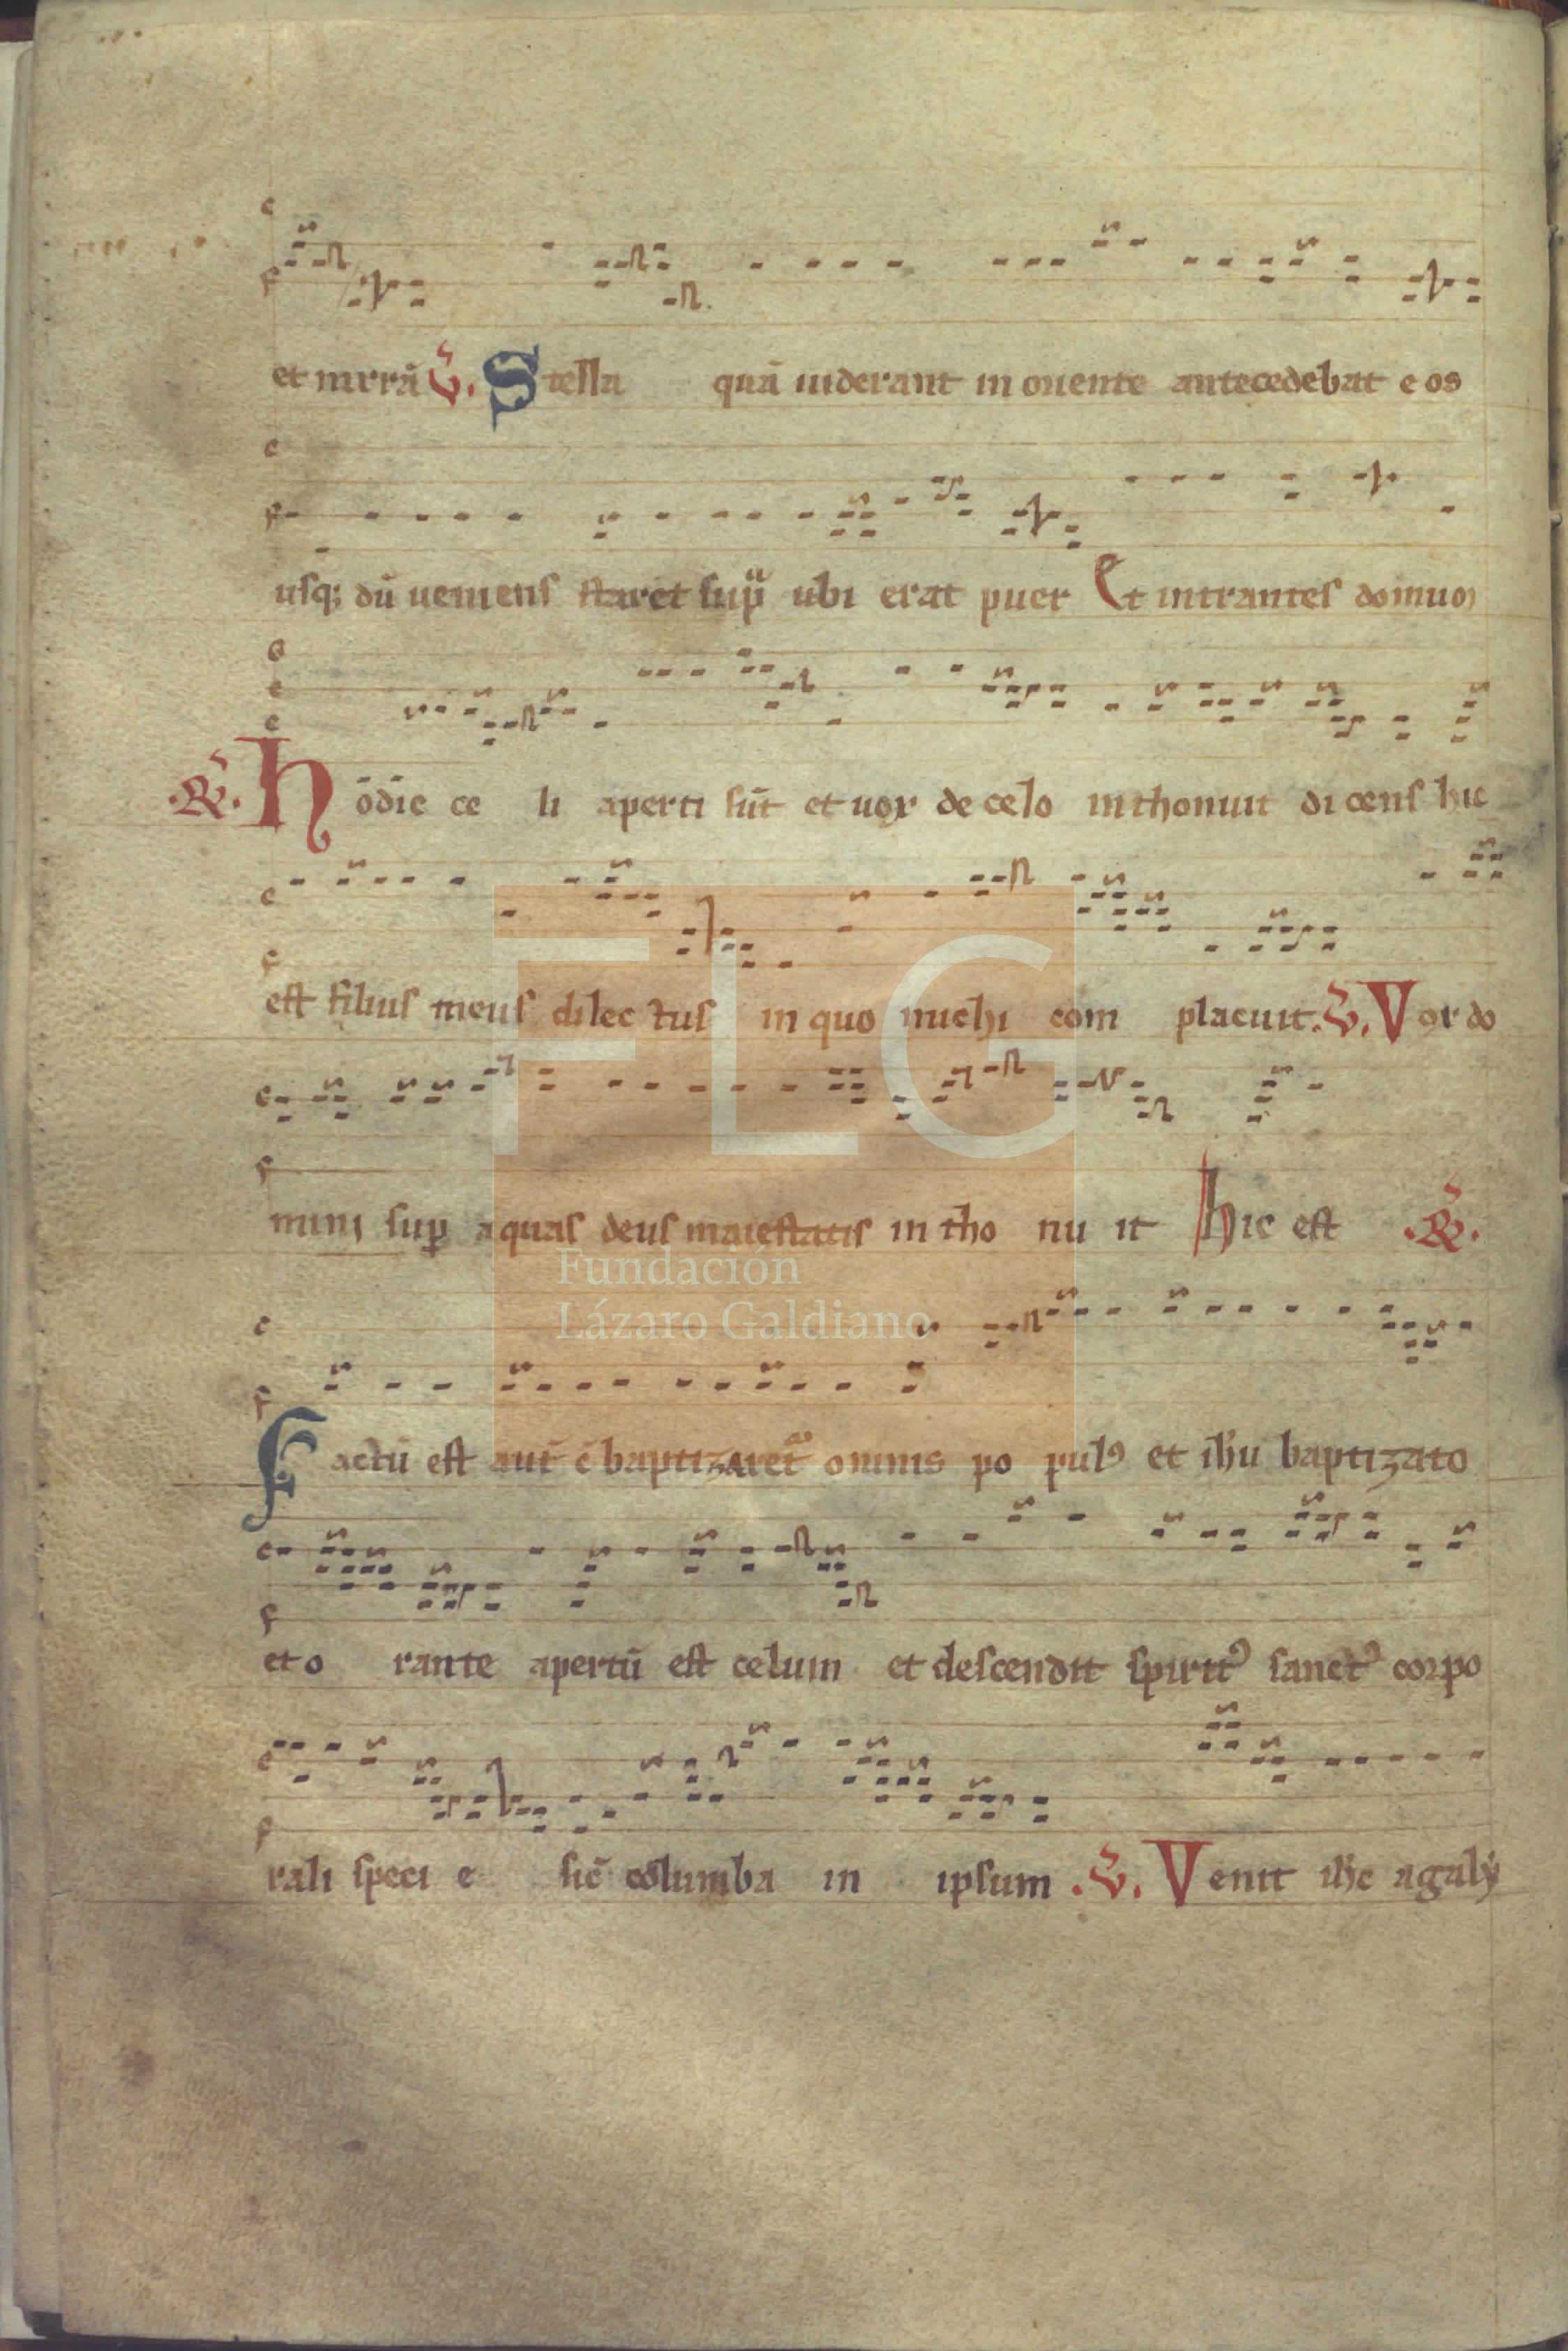 et mirrã V̄. Stella quã uiderant in oriente antecedebat e os
usq; dũ ueniens staret sup̃ ubi erat puer Et intrantes domum
.R̄. Hodie ce li aperti sũt et uox de celo inthonuit di cens hic
est filius meus dilec tus in quo michi com placuit. V̄. Vox do
mini sup aquas deus maiestatis in tho nu it Hic est .R̄.
Factũ est aut̃ c̃ baptizaret̃ omnis po pulꝰ et ih̃u baptizato
et o rante apertũ est celum et descendit spiritꝰ sanctꝰ corpo
rali speci e sic̃ columba in ipsum .V̄. Venit ih̃c a galy
FLG
Fundación
Lázaro Galdiano